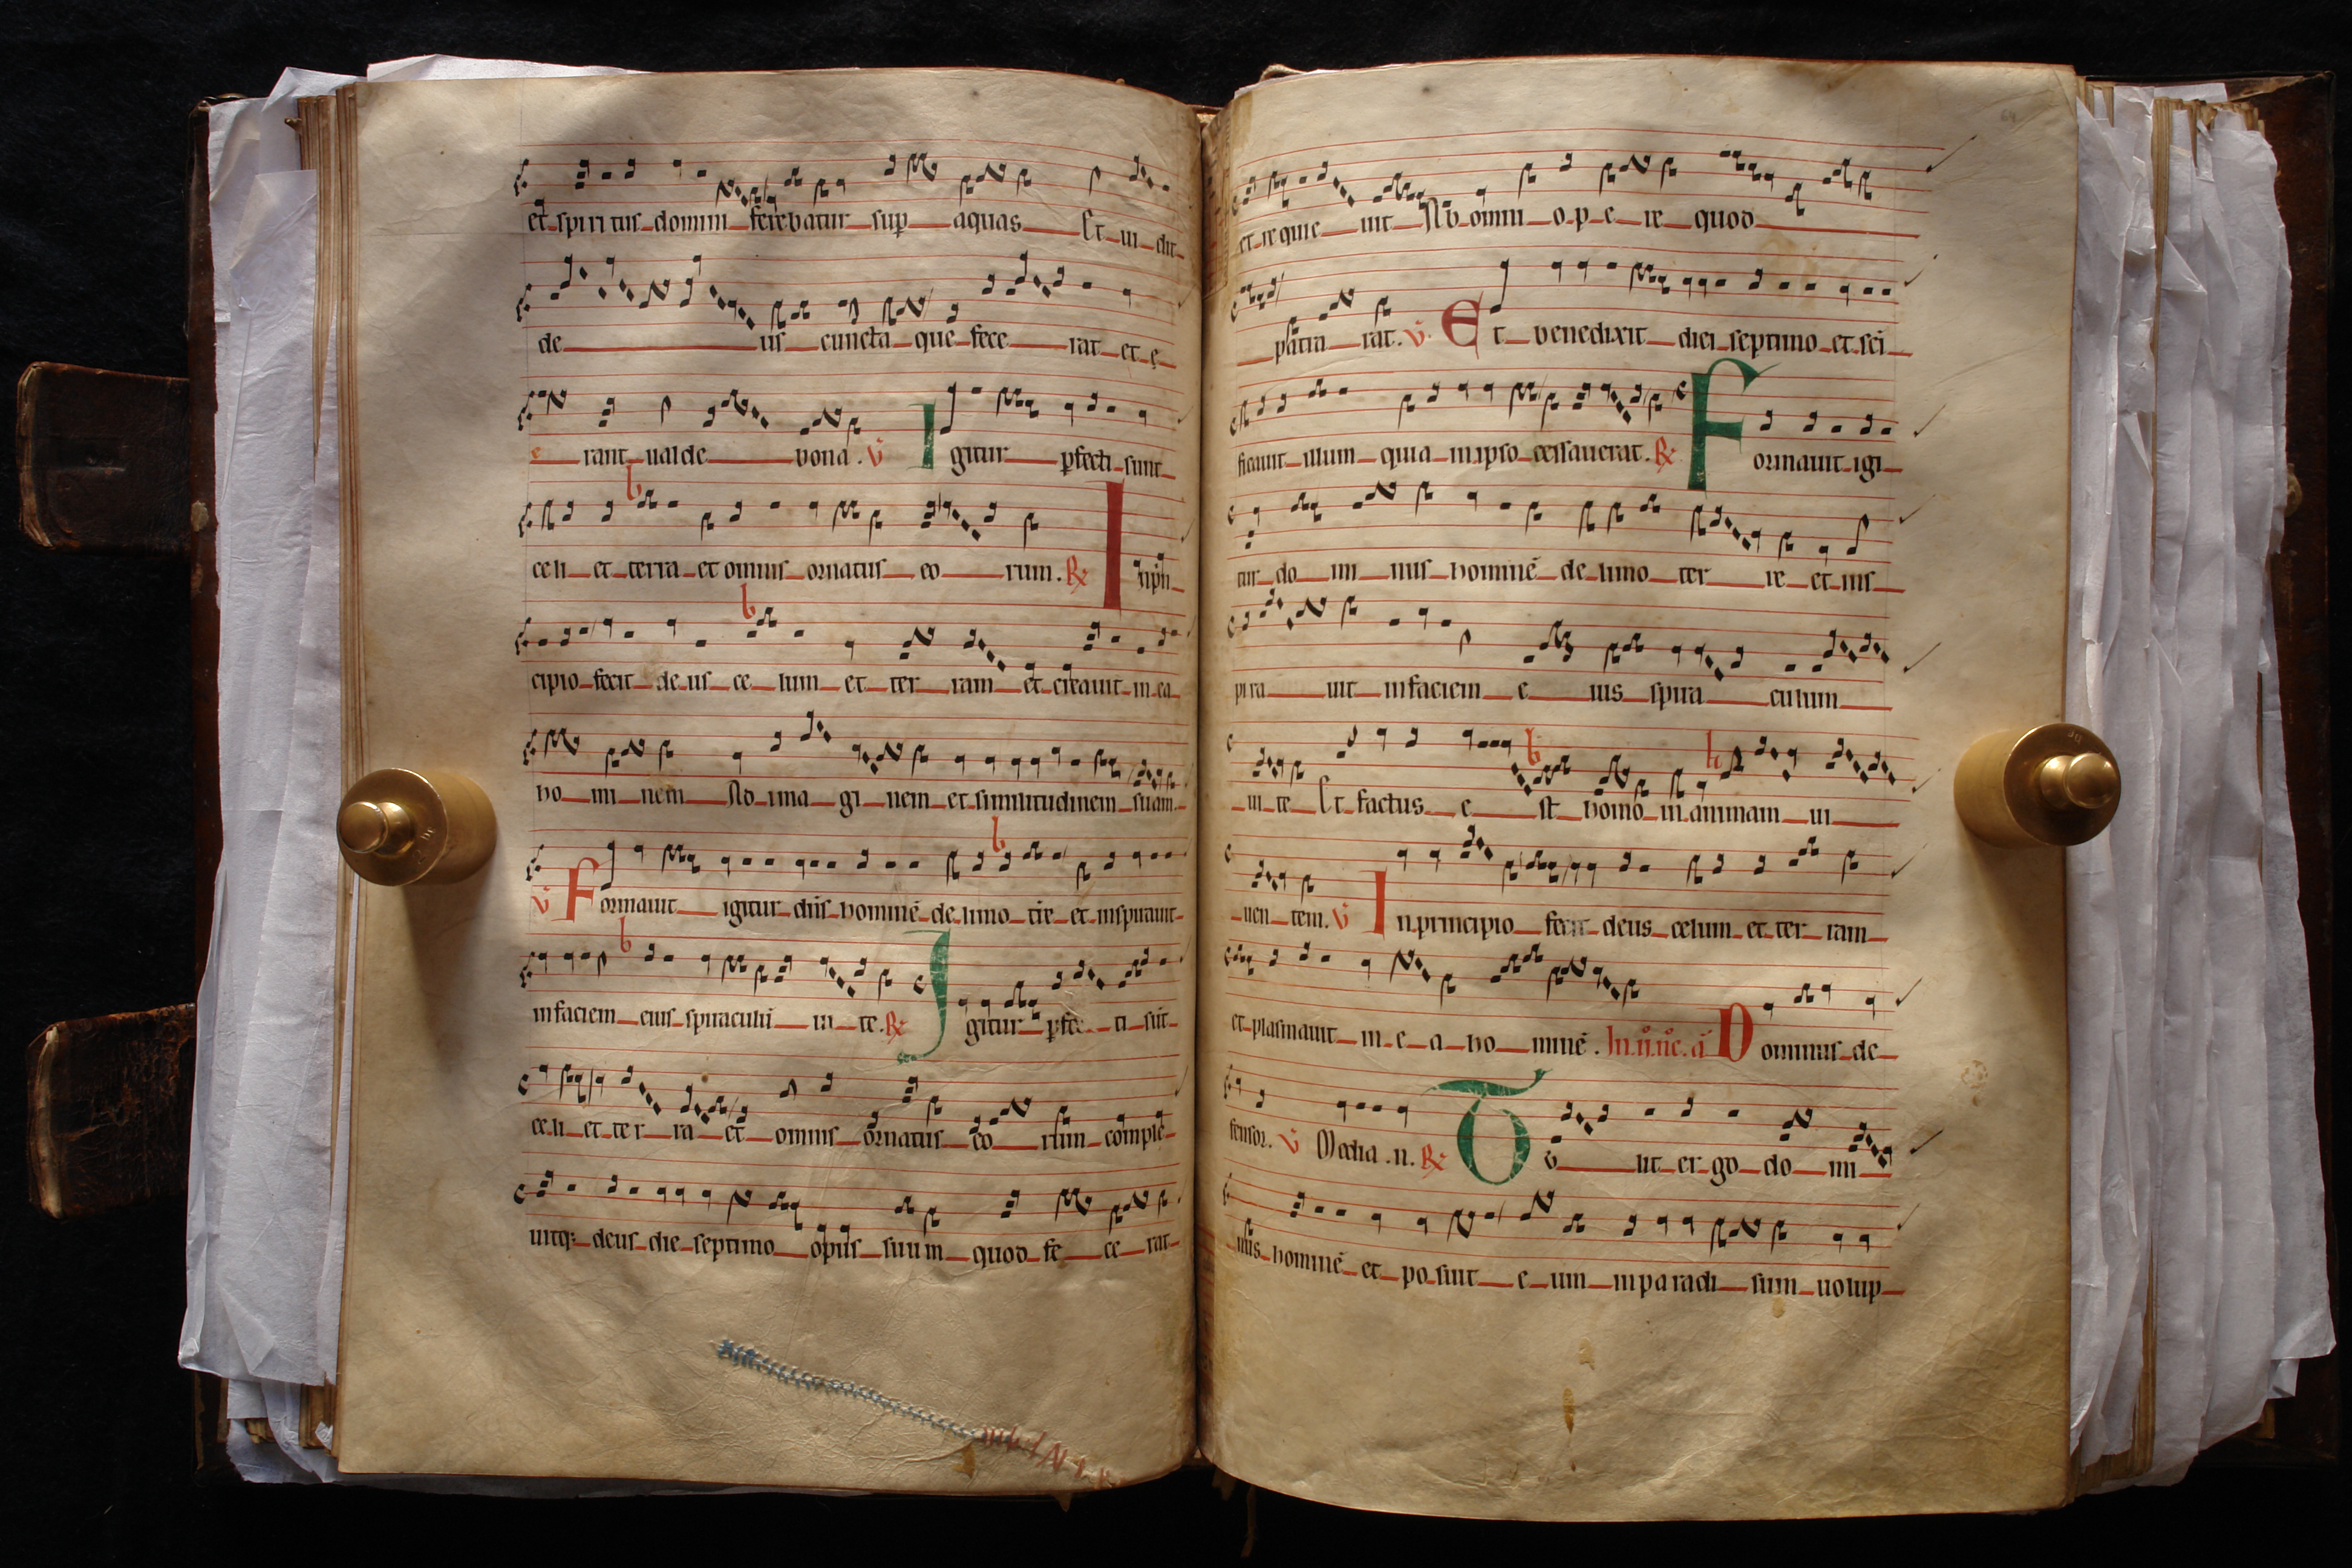 et spiritus domini ferebatur sup aquas Et ui dit
de us cuncta que fece rat et e
e rant ualde bona. V Igitur pfecti sunt
celi et terra et omnis ornatus eo rum. R In pri
cipio fecit de us ce lum et ter ram et creauit in ea
ho mi nem Ad ima gi nem et similitudinem suam
V Formauit igitur dñs hominē de limo tře et inspirauit
in faciem eius spiraculū ui te. R Igitur pfec ti sūt
celi et ter ra et omnis ornatus eo rum complē
uitq; deus die septimo opus suum quod fe ce rat
et requie uit Ab omni o p e re quod
patra rat. V. Et benedixit diei septimo et sci
ficauit illum quia in ipso cessauerat. R Formauit igi
tur do mi nus hominē de limo ter re et ins
pira uit in faciem e ius spira culum
ui te Et factus e st homo in animam ui
uen tem. V In principio fecit deus celum et ter ram
et plasmauit in e a ho minē. In .ii. nč. a Dominus de
fensor. V Media .n. R Tu lit er go do mi
nus hominē et po suit e um in pa radi sum uolup